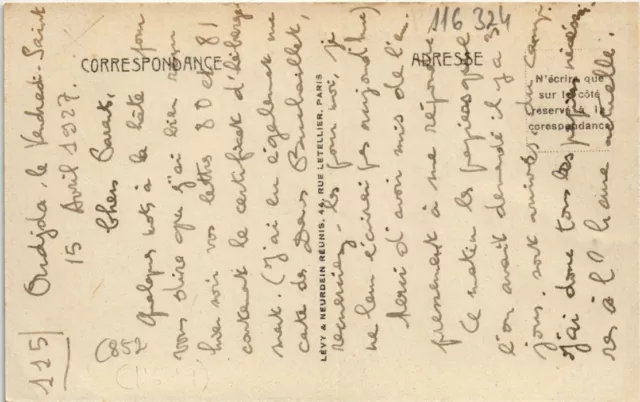 116 324
CORRESPONDANCE
ADRESSE
N'écrire que
sur le côté
réservé à la
correspondance
LÉVY & NEURDEIN RÉUNIS, 44, RUE LETELLIER, PARIS
115/ Oudjda, le Vendredi-Saint
15 Avril 1927.
Chers Parents,
Quelques mots à la hâte pour
vous dire que j'ai bien reçu
hier soir vos lettres 80 et 81
contenant le certificat d'héberge-
ment. (J'ai eu également une
carte des Dames
remerciez-les pour moi, je
ne leur écrirai pas aujourd'hui)
Merci d'avoir mis de l'em-
pressement à me répondre.
Ce matin les papiers que
l'on avait demandé il y a 3
jours, sont arrivés du Camp.
J'ai donc tous les papiers nécessai-
res à l'heure actuelle.